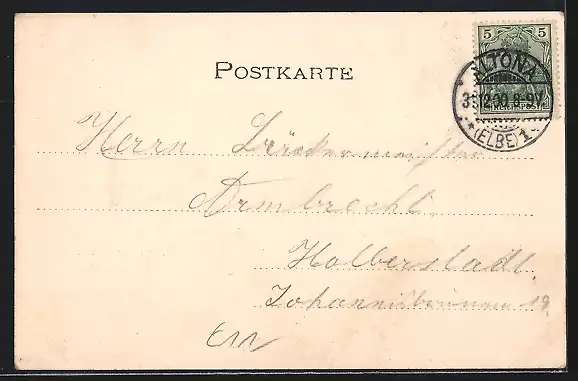 POSTKARTE
5 5
REICHSPOST
ALTONA
31.12.00. 8-9V.
(ELBE) 1
Herrn Bäckermeister
Armbrecht.
Halberstadt.
Johannisbrunnen 19.